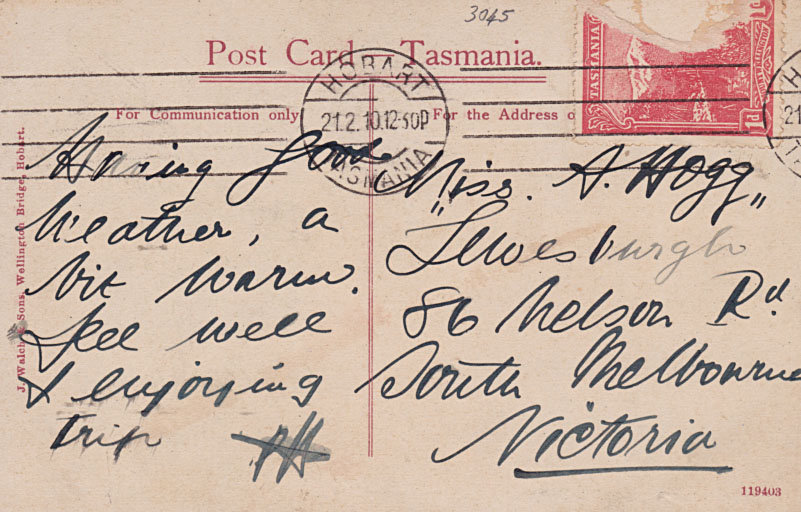 3045
Post Card Tasmania.
TASMANIA
1D
1D
HOBART
21.2.10.12-30P
TASMANIA
For Communication only
For the Address o
H
21
TA
Having good
Weather, a
bit warm.
Feel well
& enjoying
trip
Miss. A. Hogg
"Lewesburgh"
86 Nelson Rd.
South Melbourne
Victoria
J. Walch & Sons, Wellington Bridge, Hobart.
119403